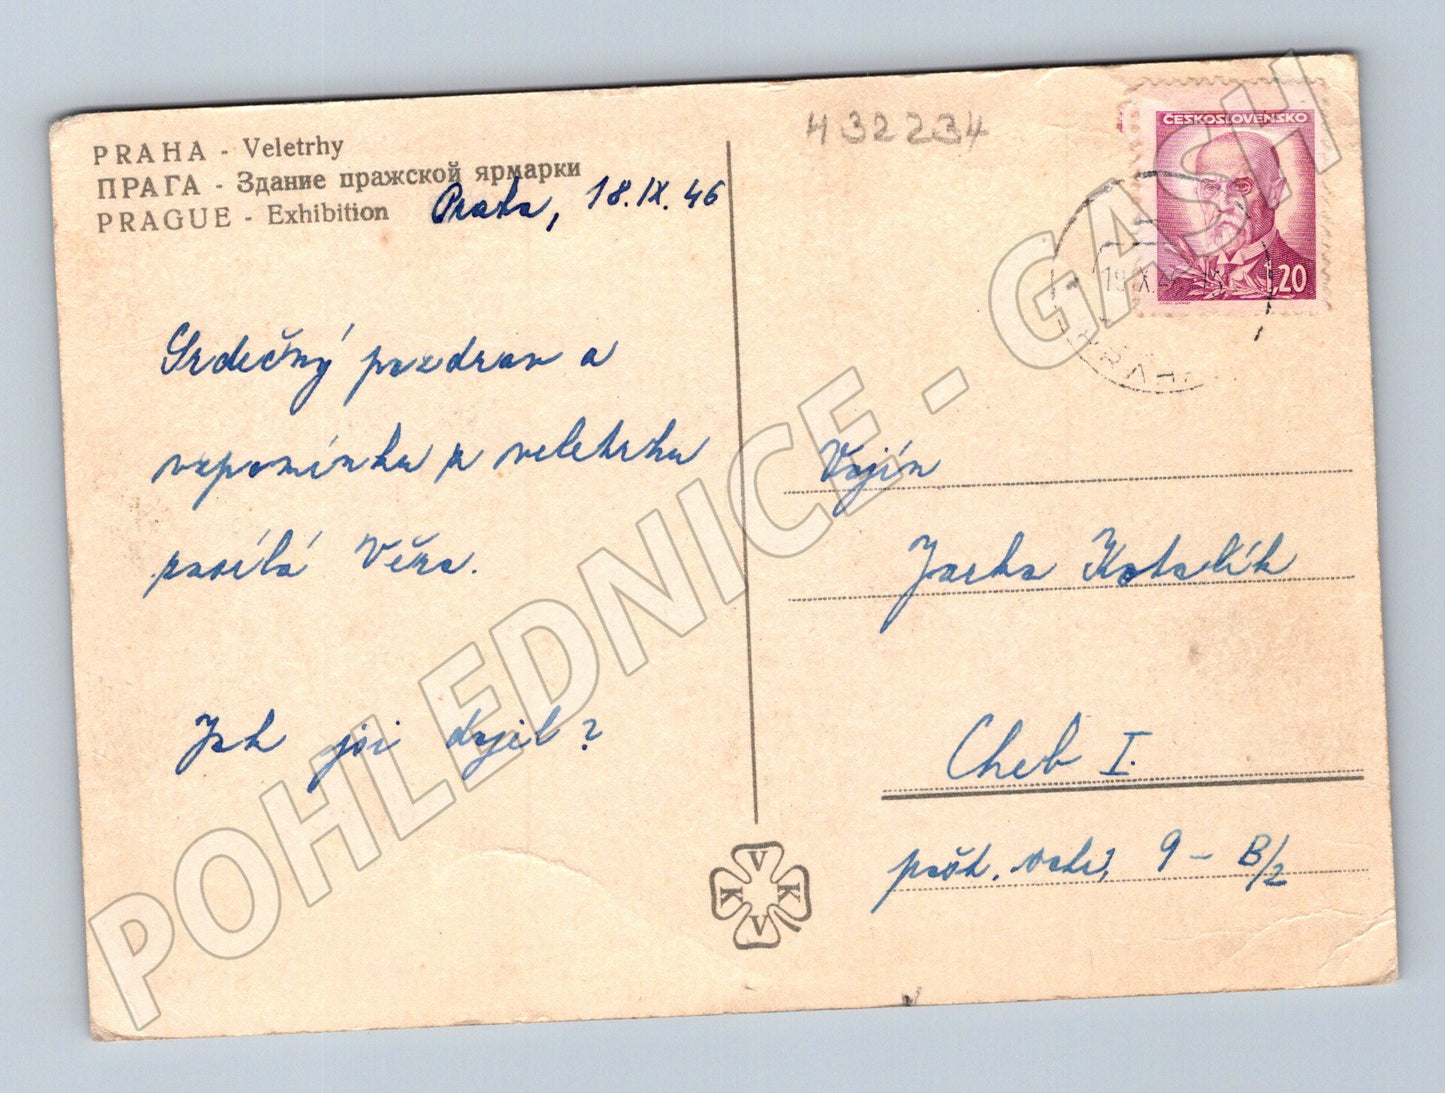 PRAHA - Veletrhy
ПРАГА - Здание пражской ярмарки
PRAGUE - Exhibition
Praha, 18.IX.46
Srdečný pozdrav a
vzpomínku z veletrhu
posílá Věra.
Jak jsi dojel?
H32234
ČESKOSLOVENSKO
1,20
19.IX.4
PRAHA
Vojín
Jarka Kotalík
Cheb I.
9 - B/2
V
K
V
K
POHLEDNICE - GASH